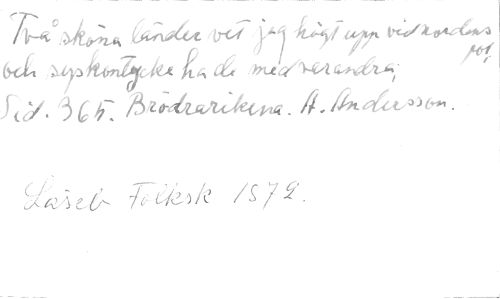 Två sköna länder vet jag högt upp vid nordens
pol,
och syskontycke ha de med varandra,
Sid. 365. Brödrarikena. A. Andersson.
Läseb Folksk 1872.